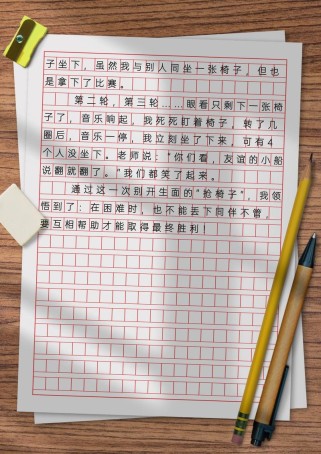 子坐下，虽然我与别人同坐一张椅子，但也
是拿下了比赛。
第二轮，第三轮……眼看只剩下一张椅
子了，音乐响起，我死死盯着椅子，转了几
圈后，音乐一停，我立刻坐了下来，可有4
个人没坐下。老师说：“你们看，友谊的小船
说翻就翻了。”我们都笑了起来。
通过这一次别开生面的“抢椅子”，我领
悟到了：在困难时，也不能丢下同伴不管，
要互相帮助才能取得最终胜利！